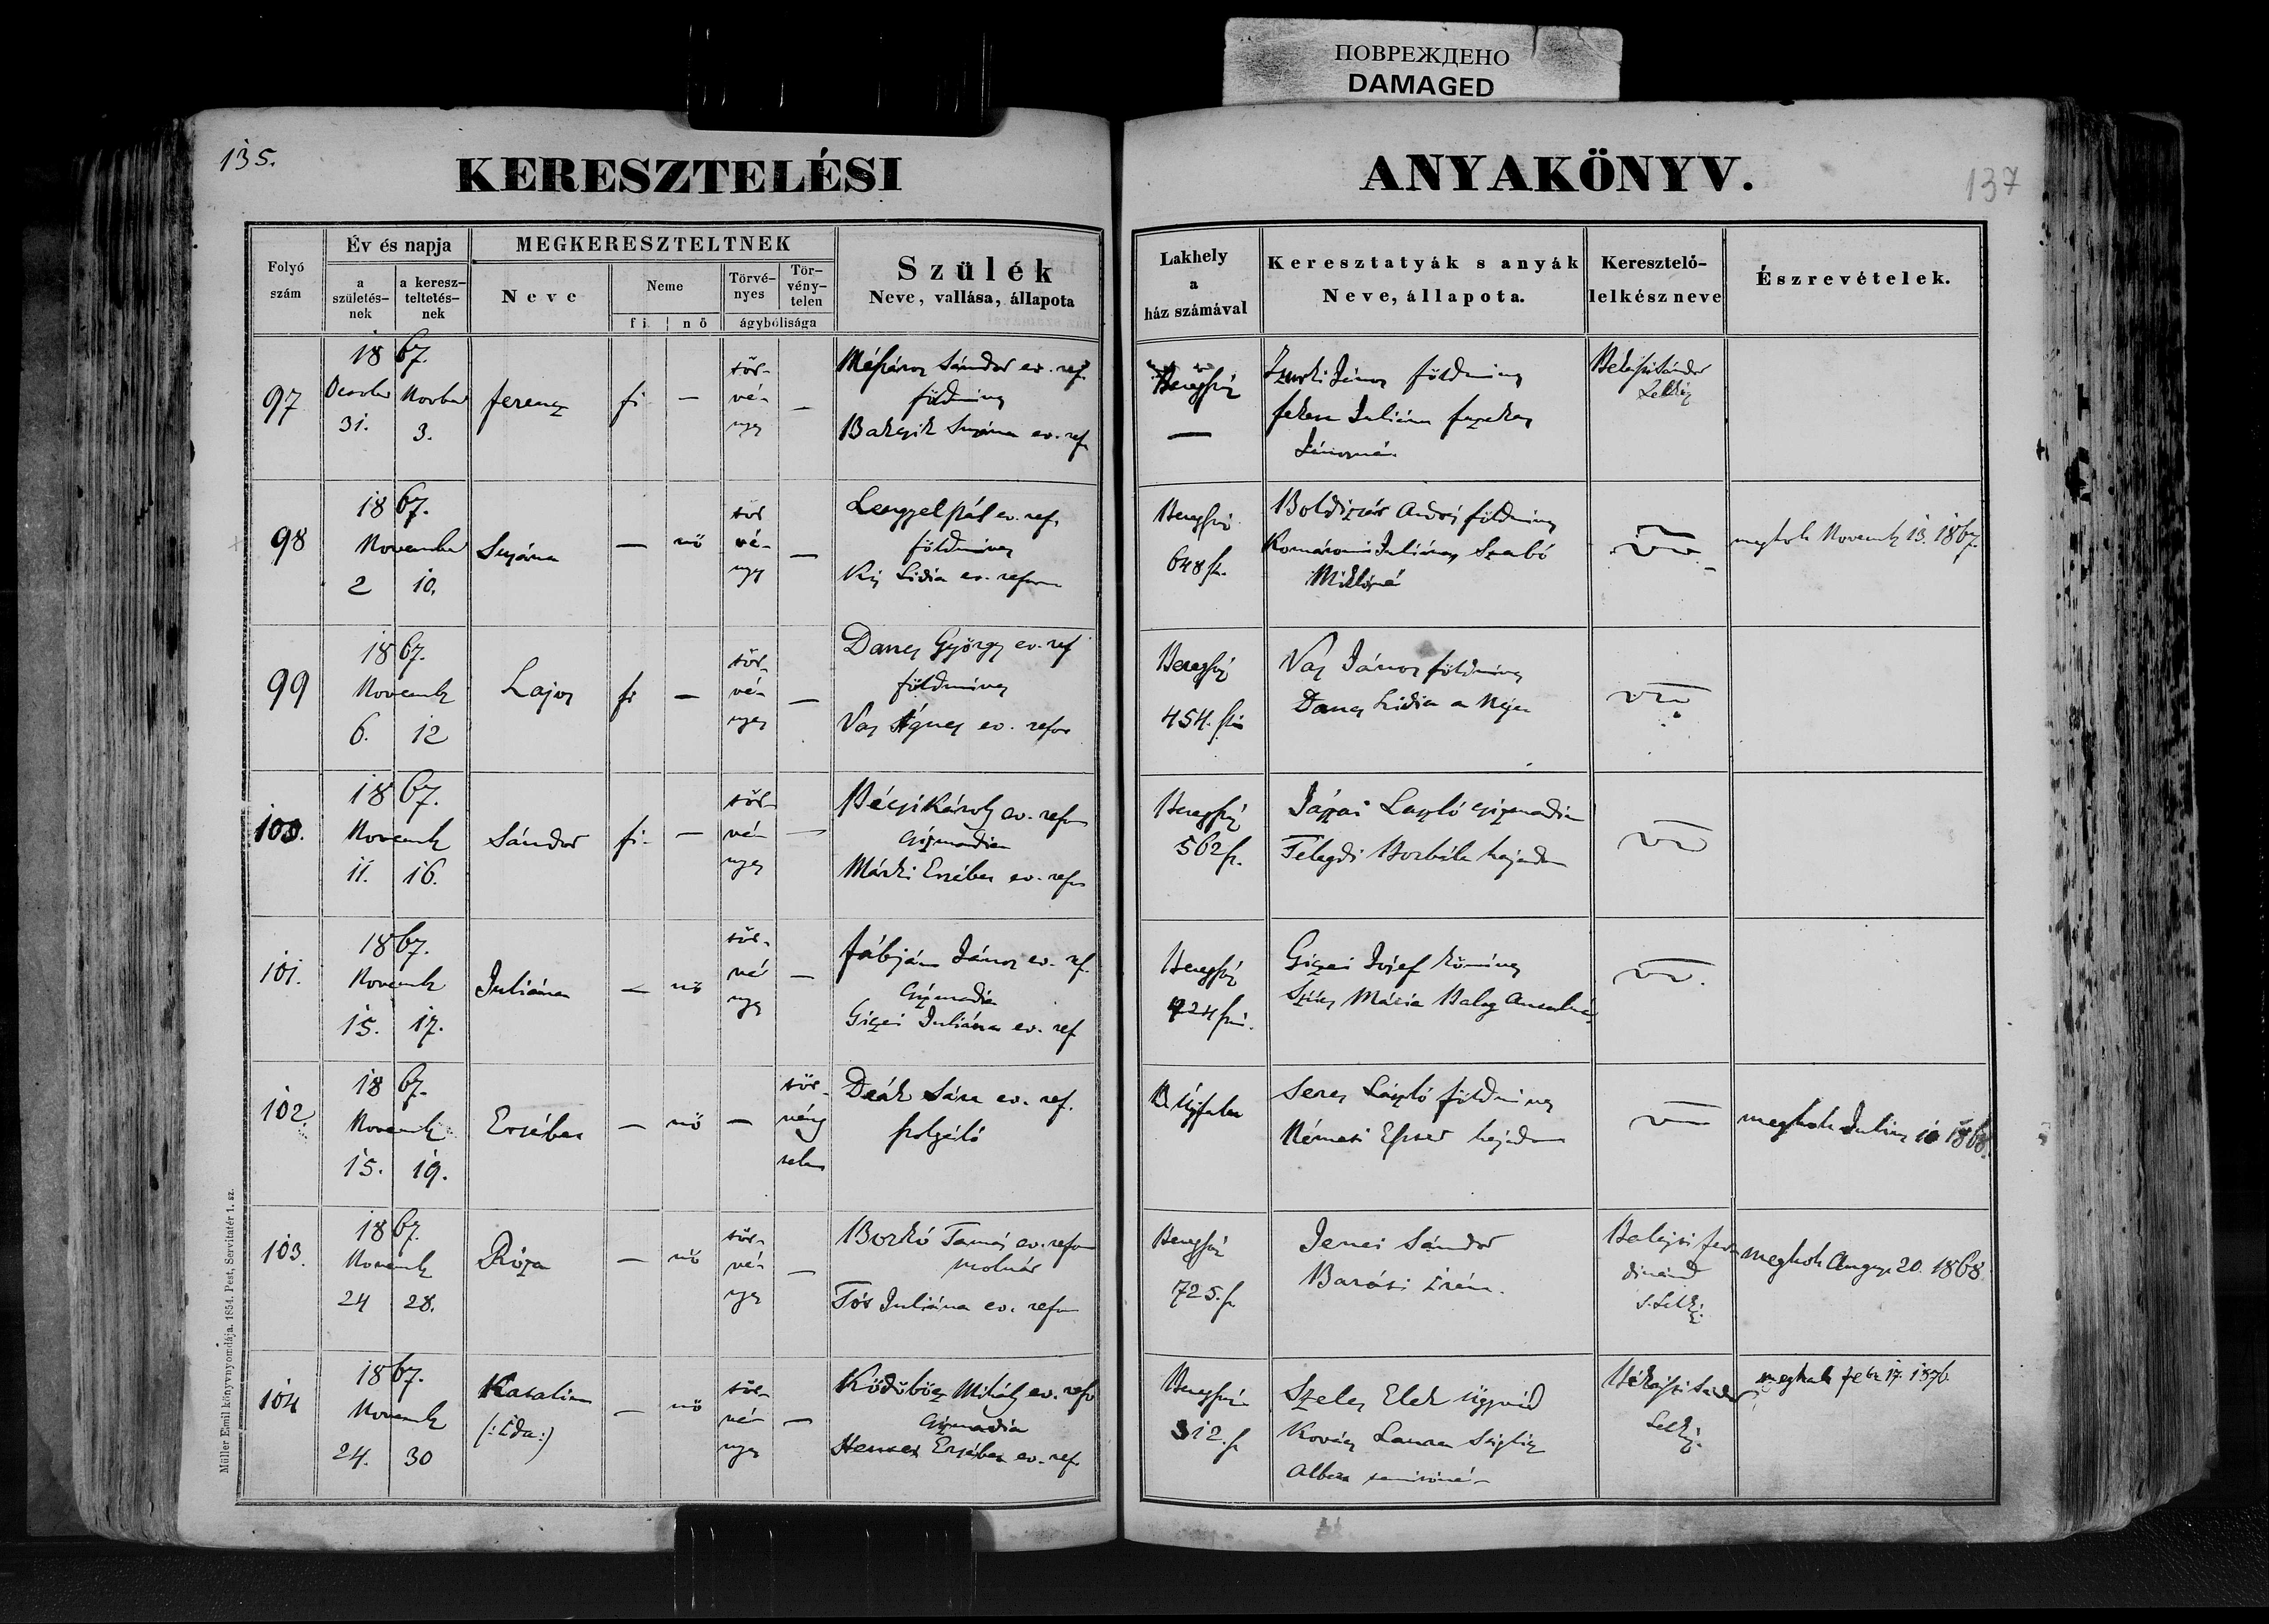 ПОВРЕЖДЕНО
DAMAGED
135.
KERESZTELÉSI
ANYAKÖNYV.
137
Folyó szám
Év és napja
a születés-nek
a keresz-teltetés-nek
MEGKERESZTELTNEK
Neve
Neme
fi
nő
Törvé-nyes
Tör-vény-telen
ágybólisága
Szülék
Neve, vallása, állapota
Lakhely
a
ház számával
Keresztatyák s anyák
Neve, állapota.
Keresztelő-
lelkész neve
Észrevételek.
97
1867.
31.
3.
Ferencz
fi
—
tör-
vé-
nyes
—
Mészáros Sándor ev. ref.
földmives
ev. ref
Beregszász
—
János földmives
Fekete Juliána Fazekas
Jánosné
98
1867.
November
2
10.
Susána
—
nő
tör
vé-
nyes
—
Lengyel Pál ev. ref.
földmives
Kis Lidia ev. reform
Beregszász
648 sz.
Boldizsár András földmives
Komáromi Juliána Szabó
Miklósné
megholt Novemb 13. 1867.
99
1867.
Novemb
6.
12
Lajos
fi
—
tör-
vé-
nyes
—
Danes György ev. ref
földmives
Vas Ágnes ev. refor
Beregszász
454. szá
Vas János földmives
Danes Lidia a Neje
100.
1867.
Novemb
11.
16.
Sándor
fi.
—
tör-
vé-
nyes
—
Bécsi Károly ev. refor
csizmadia
Márki Ersébet ev. refor
Beregszász
562 sz.
László csizmadia
Telegdi Borbála hajadon
101.
1867.
Novemb
15.
17.
Juliána
—
nő
tör-
vé
nyes
—
Fábján János ev. ref.
csizmadia
Juliána ev. ref
Beregszász
724 szá.
József kőmíves
Szűcs Mária Balog
102.
1867.
Novemb
15.
19.
Ersébet
—
nő
—
tör-
vény
telen
Deák Sára ev. ref.
szolgáló
B. Ujfalu
Seres László földmives
Németi Eszter hajadon
megholt Julius 10 1868.
103.
1867.
Novemb
24
28.
Róza
—
nő
tör-
vé-
nyes
—
Borkó Tamás ev. refor
molnár
Juliána ev. refor
Beregszász
725. sz
Jenei Sándor
Irén.
Ferdinánd
S. Lelkész
megholt Augusz 20. 1868.
104
1867.
Novemb
24.
30
Katalin
(: Ida :)
—
nő
tör-
vé-
nyes
—
Ködöböcz Mihály ev. refor
csizmadia
Ersébet ev. ref.
Beregszász
312. sz
Szeles Elek ügyvéd
Kovács Laura
Albert
Lelkész
megholt Febr 17. 1876.
Müller Emil könyvnyomdája. 1854. Pest, Servitatér 1. sz.